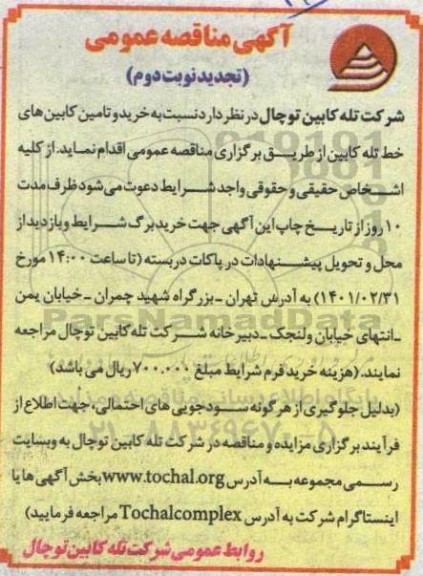 آگهی مناقصه عمومی
(تجدید نوبت دوم)
شرکت تله کابین توچال در نظر دارد نسبت به خرید و تامین کابین های
خط تله کابین از طریق برگزاری مناقصه عمومی اقدام نماید. از کلیه
اشخاص حقیقی و حقوقی واجد شرایط دعوت می شود ظرف مدت
۱۰ روز از تاریخ چاپ این آگهی جهت خرید برگ شرایط و بازدید از
محل و تحویل پیشنهادات در پاکات دربسته (تا ساعت ۱۴:۰۰ مورخ
۱۴۰۱/۰۲/۳۱) به آدرس تهران - بزرگراه شهید چمران - خیابان یمن
-انتهای خیابان ولنجک - دبیرخانه شرکت تله کابین توچال مراجعه
نمایند. (هزینه خرید فرم شرایط مبلغ ۷۰۰.۰۰۰ ریال می باشد)
(بدلیل جلوگیری از هر گونه سودجویی های احتمالی، جهت اطلاع از
فرآیند برگزاری مزایده و مناقصه در شرکت تله کابین توچال به وبسایت
رسمی مجموعه به آدرس www.tochal.org بخش آگهی ها یا
اینستاگرام شرکت به آدرس Tochalcomplex مراجعه فرمایید)
روابط عمومی شرکت تله کابین توچال
ParsNamadData
۰۲۱-۸۸۳۴۹۶۷۰-۵